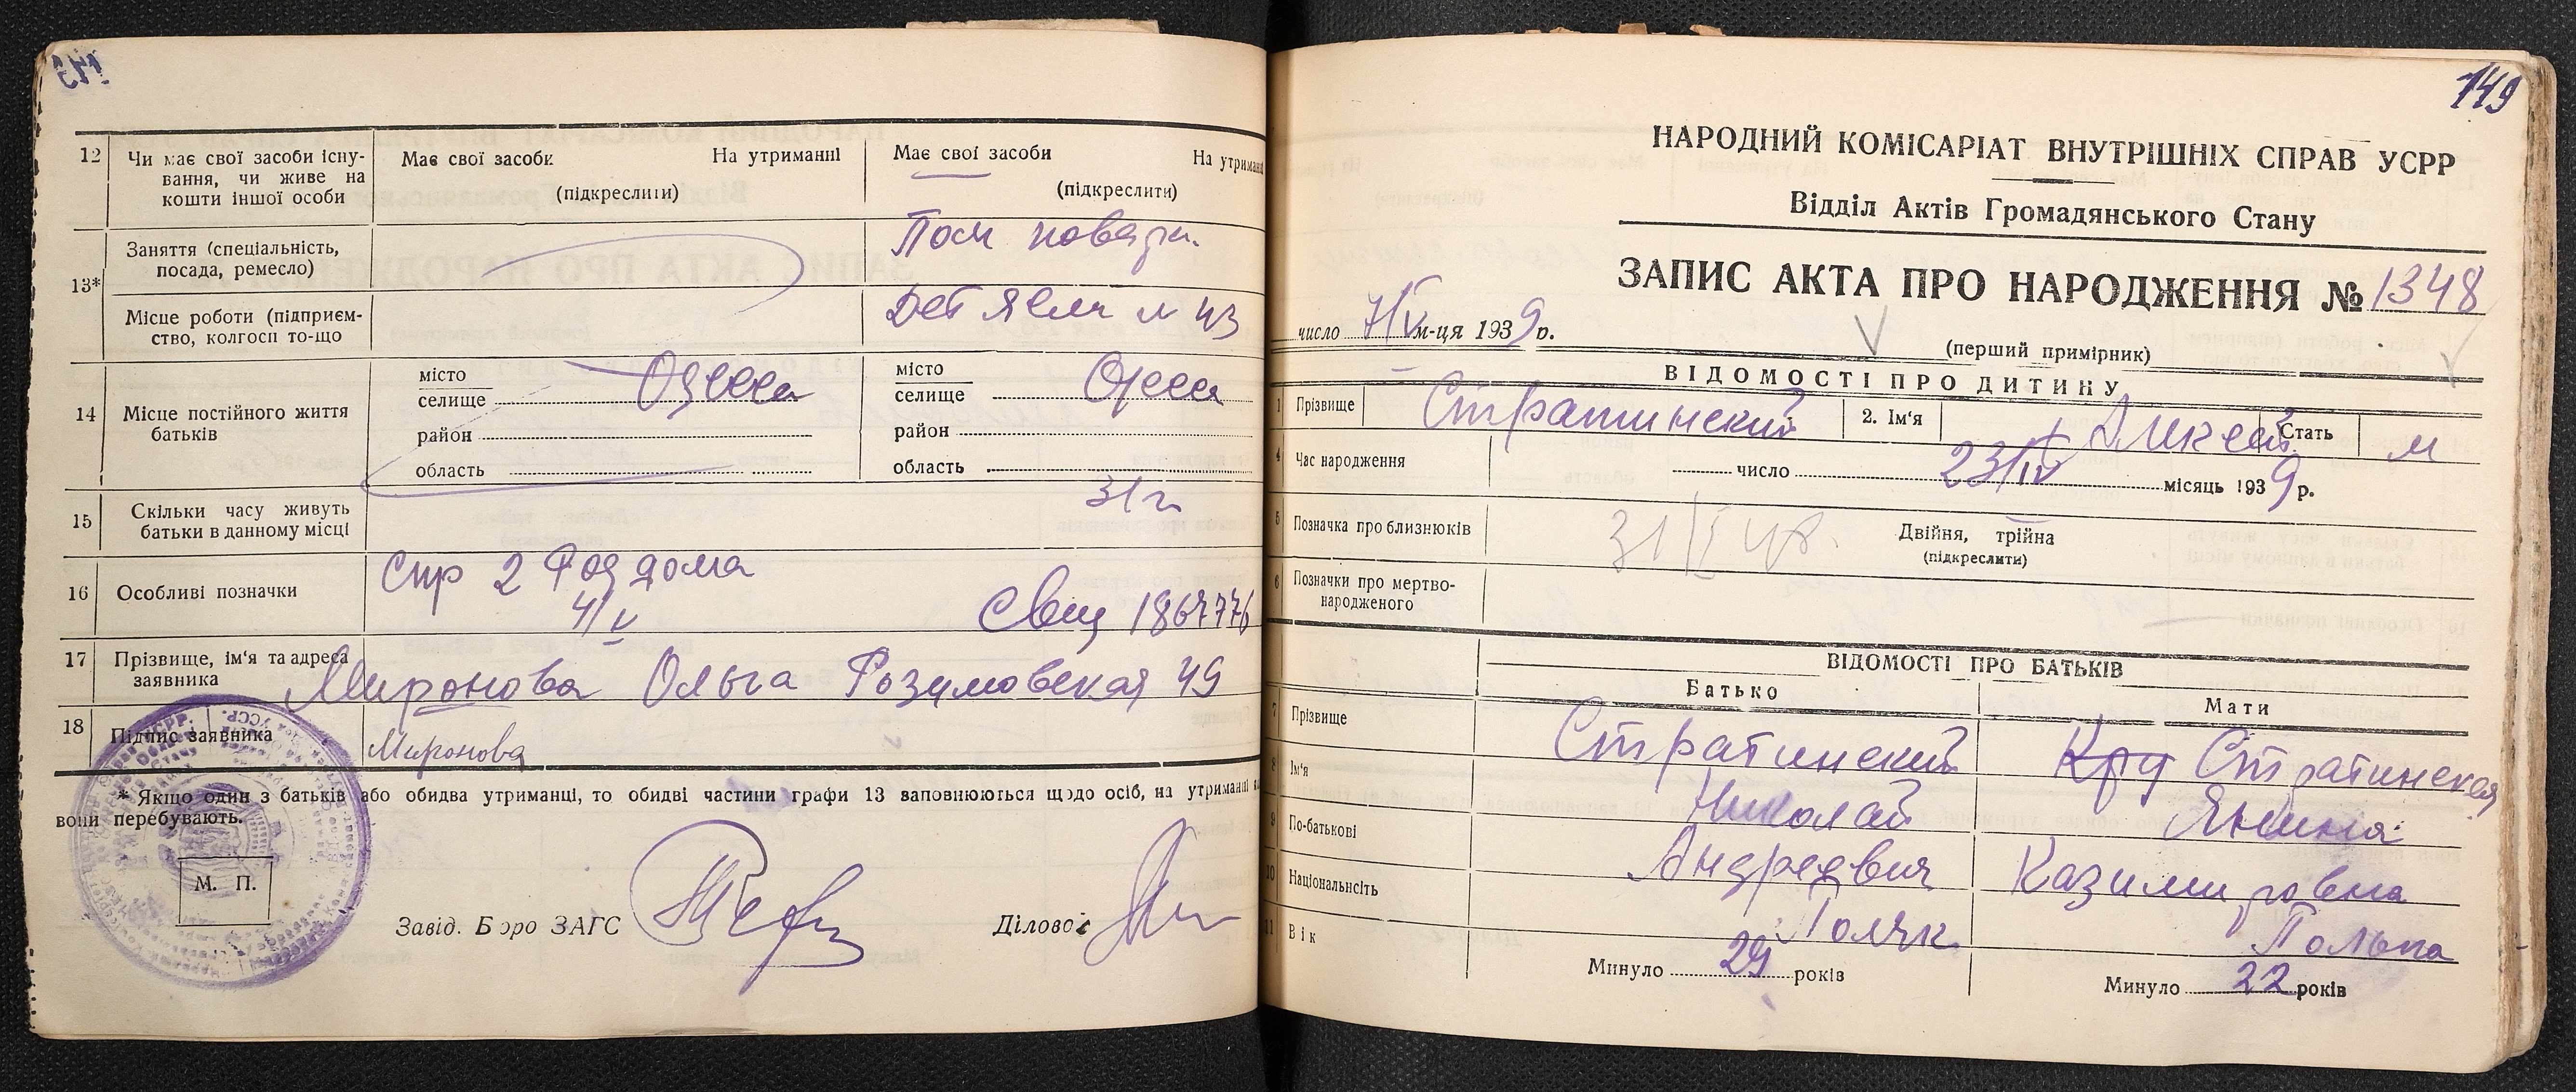 12 Чи має свої засоби існування, чи живе на кошти іншої особи
Має свої засоби На утриманні
(підкреслити)
Має свої засоби На утриманні
(підкреслити)
13*
Заняття (спеціальність, посада, ремесло)
Пом повара.
Місце роботи (підприємство, колгосп то-що
Дет Ясли № 43
14 Місце постійного життя батьків
місто
селище Одесса
район
область
місто
селище Одесса
район
область
15 Скільки часу живуть батьки в данному місці
31 г.
16 Особливі позначки
Спр 2 Роддома
4/V
Свид 1867776
17 Прізвище, ім'я та адреса заявника
Миронова Ольга Розумовская 49
18 Підпис заявника
Миронова
* Якщо один з батьків або обидва утриманці, то обидві частини графи 13 заповнюються щодо осіб, на утриманні
вони перебувають.
М. П.
Завід. Бюро ЗАГС
Діловод
149
НАРОДНИЙ КОМІСАРІАТ ВНУТРІШНІХ СПРАВ УСРР
Відділ Актів Громадянського Стану
ЗАПИС АКТА ПРО НАРОДЖЕННЯ № 1348
число 7/V м-ця 1939 р.
(перший примірник)
ВІДОМОСТІ ПРО ДИТИНУ
1 Прізвище Стратинский 2. Ім'я Алексей Стать м
4 Час народження число 23/IV місяць 1939 р.
5 Позначка про близнюків Двійня, трійна
(підкреслити)
6 Позначки про мертвонародженого
ВІДОМОСТІ ПРО БАТЬКІВ
Батько Мати
7 Прізвище Стратинский Стратинская
8 Ім'я Николай Янина
9 По-батькові Андреевич Казимировна
10 Національність Поляк Полька
11 Вік Минуло 29 років Минуло 22 років